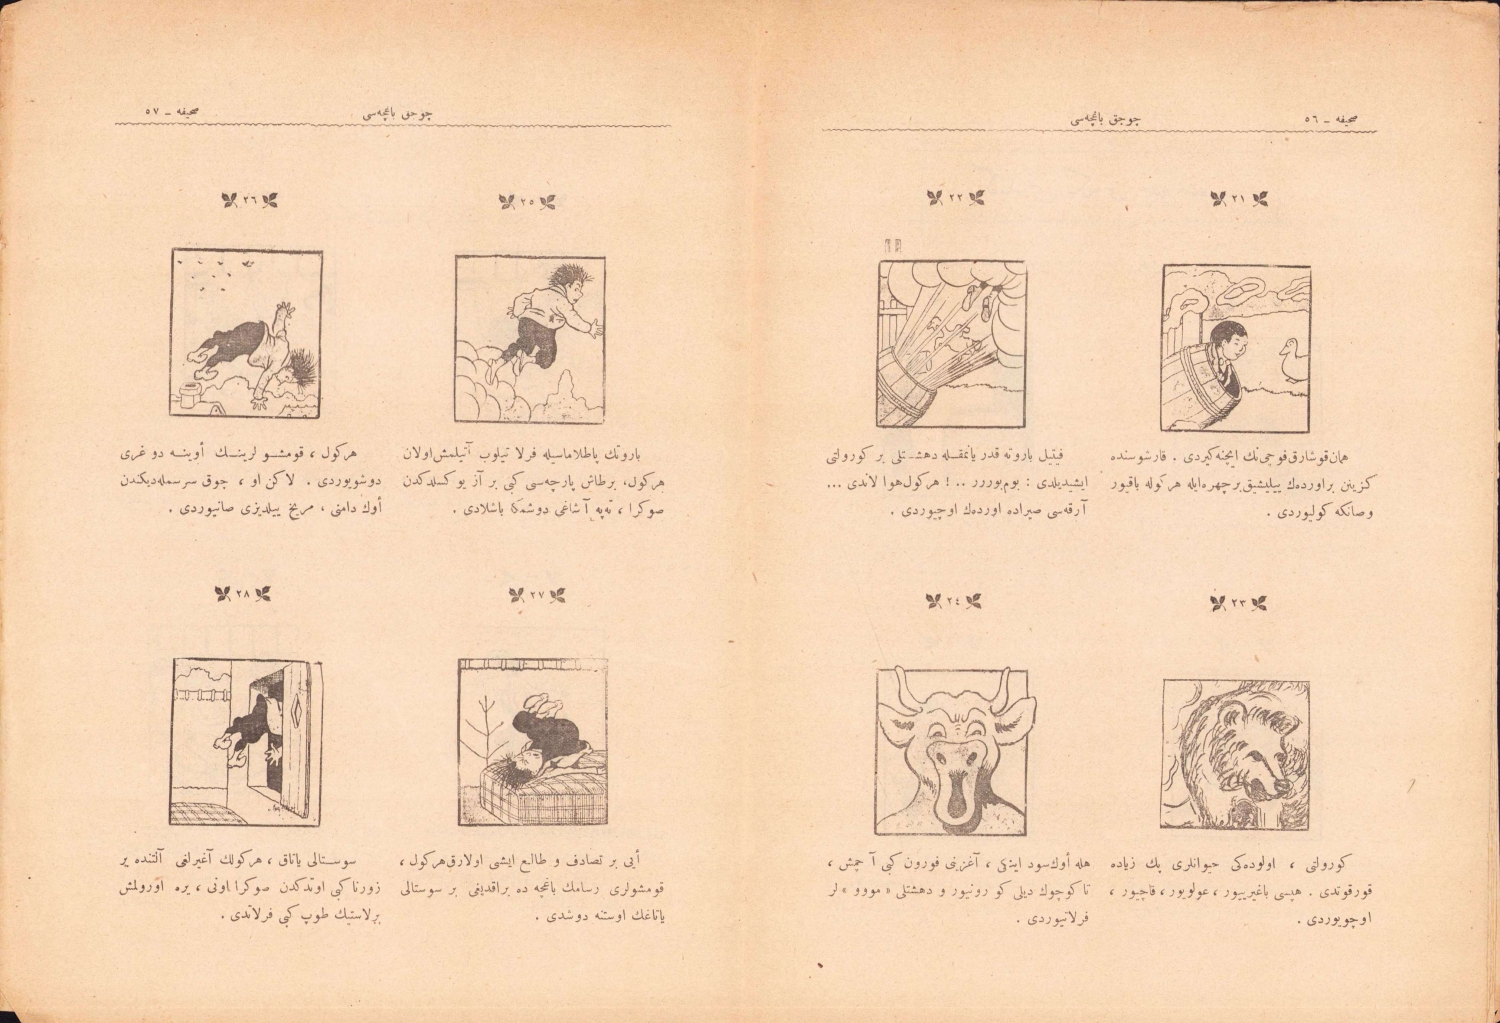 صحیفه ـ ٥٦
چوجق باغچه‌سی
٢١
همان قوشارق فوچی‌نك ایچنه كیردی . قارشوسنده
كزینن بر اوردەك ییلیشیق بر چهره ایله هركوله باقیور
وصانكه كولیوردی .
٢٢
فیتیل باروته قدر یانمقله دهشتلی بر كورولتی
ایشیدیلدی : بوم بوررر .. ! هركول هوا لاندی ...
آرقه‌سی صیراده اوردەك اوچیوردی .
٢٣
كورولتی ، اولوده‌كی حیوانلری پك زیاده
قورقوتدی . هپسی باغیرییور ، عولویور ، قاچیور ،
اوچویوردی .
٢٤
هله أوك‌سود اینكی ، آغزینی فورون كبی آچمش ،
تا كوچوك دیلی كورونیور و دهشتلی « مووو » لر
فرلاتیوردی .
صحیفه ـ ٥٧
چوجق باغچه‌سی
٢٥
باروتك پاطلاماسیله فرلاتیلوب آتیلمش اولان
هركول، برطاش پارچه‌سی كبی بر آز یوكسلدكدن
صوكرا ، تپه آشاغی دوشمكه باشلادی .
٢٦
هركول ، قومشولرینك أوینه دوغری
دوشویوردی . لاكن او ، چوق سرسمله‌دیكندن
أوك دامنی ، مریخ ییلدیزی صانیوردی .
٢٧
أیی بر تصادف و طالع ایشی اولارق هركول ،
قومشولری رسامك باغچه ده براقدیغی بر سوستالی
یاتاغك اوستنه دوشدی .
٢٨
سوستالی یاتاق ، هركولك آغیرلغی آلتنده بر
زورنا كبی اوتدكدن صوكرا اونی ، یره اورولمش
برلاستیك طوپ كبی فرلاتدی .